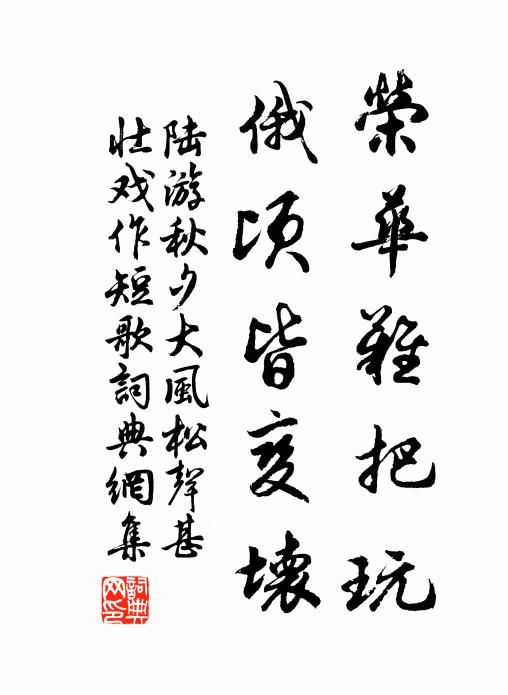 榮華難把玩
俄頃皆变壞
陆游秋夕大風松聲甚
壮戏作短歌詞典網集
詞典网印